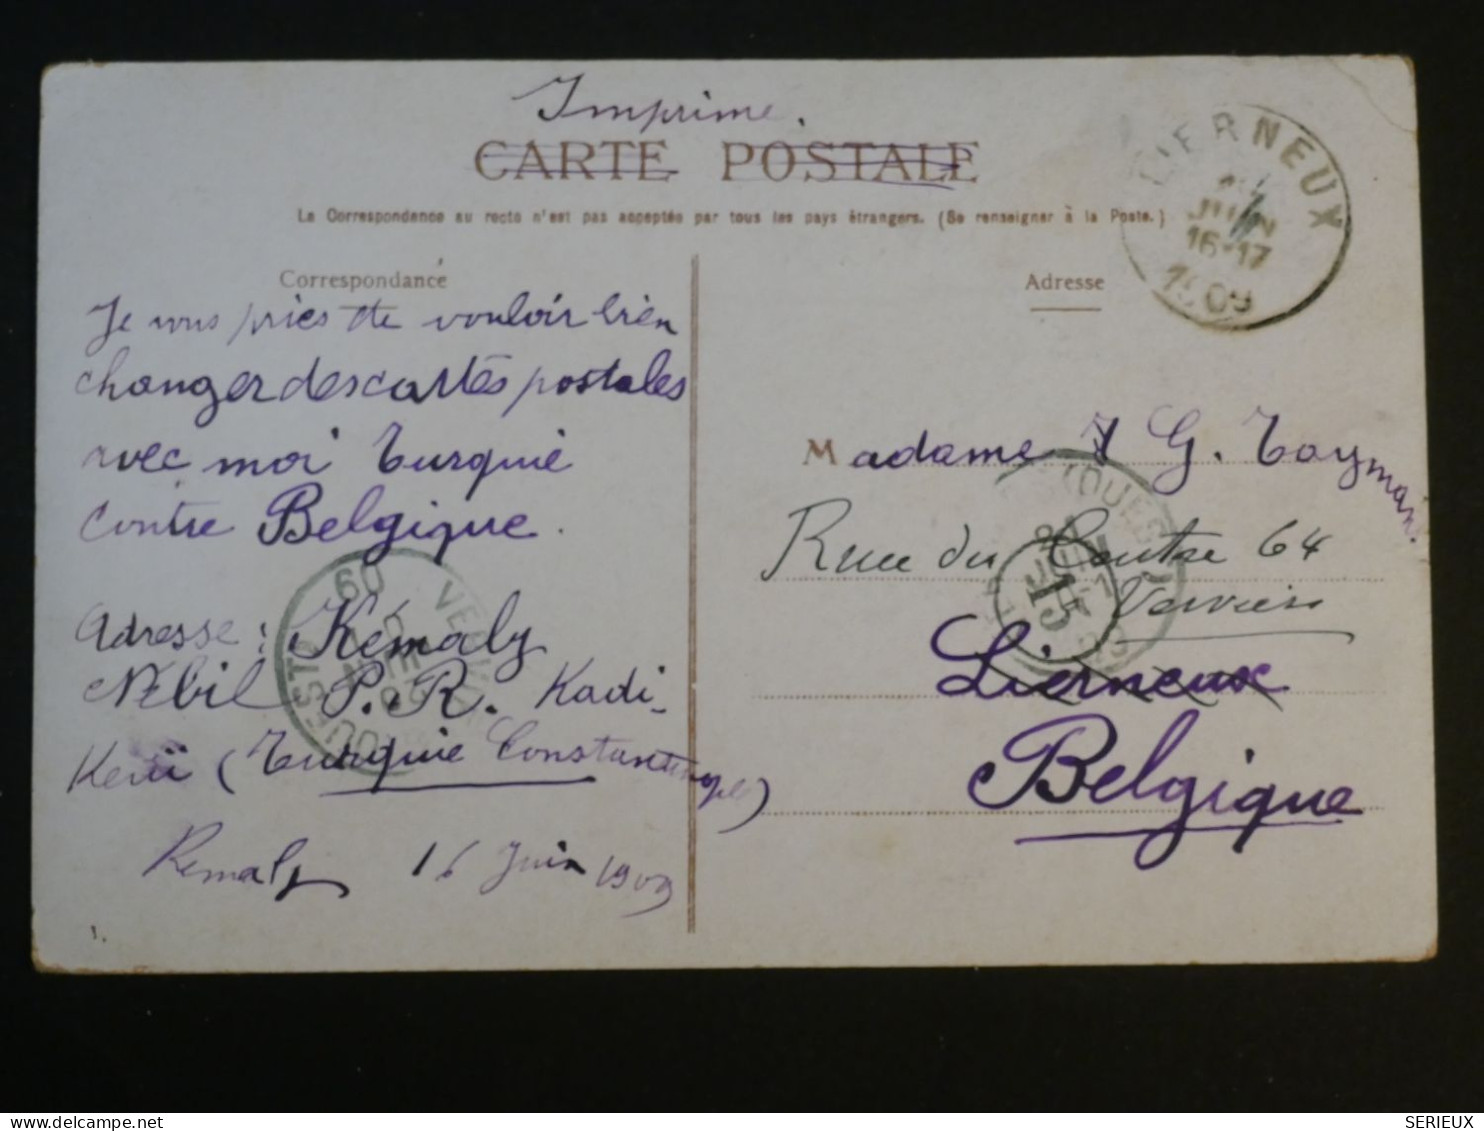 Imprime.
CARTE POSTALE
La Correspondance au recto n'est pas acceptée par tous les pays étrangers. (Se renseigner à la Poste.)
Correspondance
Je vous pries de vouloir bien
changer des cartes postales
avec moi Turquie
contre Belgique.
Adresse: Kemaly
Nébil P.R. Kadi-
Keuï (Turquie Constantinople)
Kemaly 16 Juin 1909
1.
LIERNEUX
JUIN
16-17
1909
Adresse
Madame G. Tayman
Rue du Centre 64
Verviers
15
Lierneux
Belgique
SERIEUX